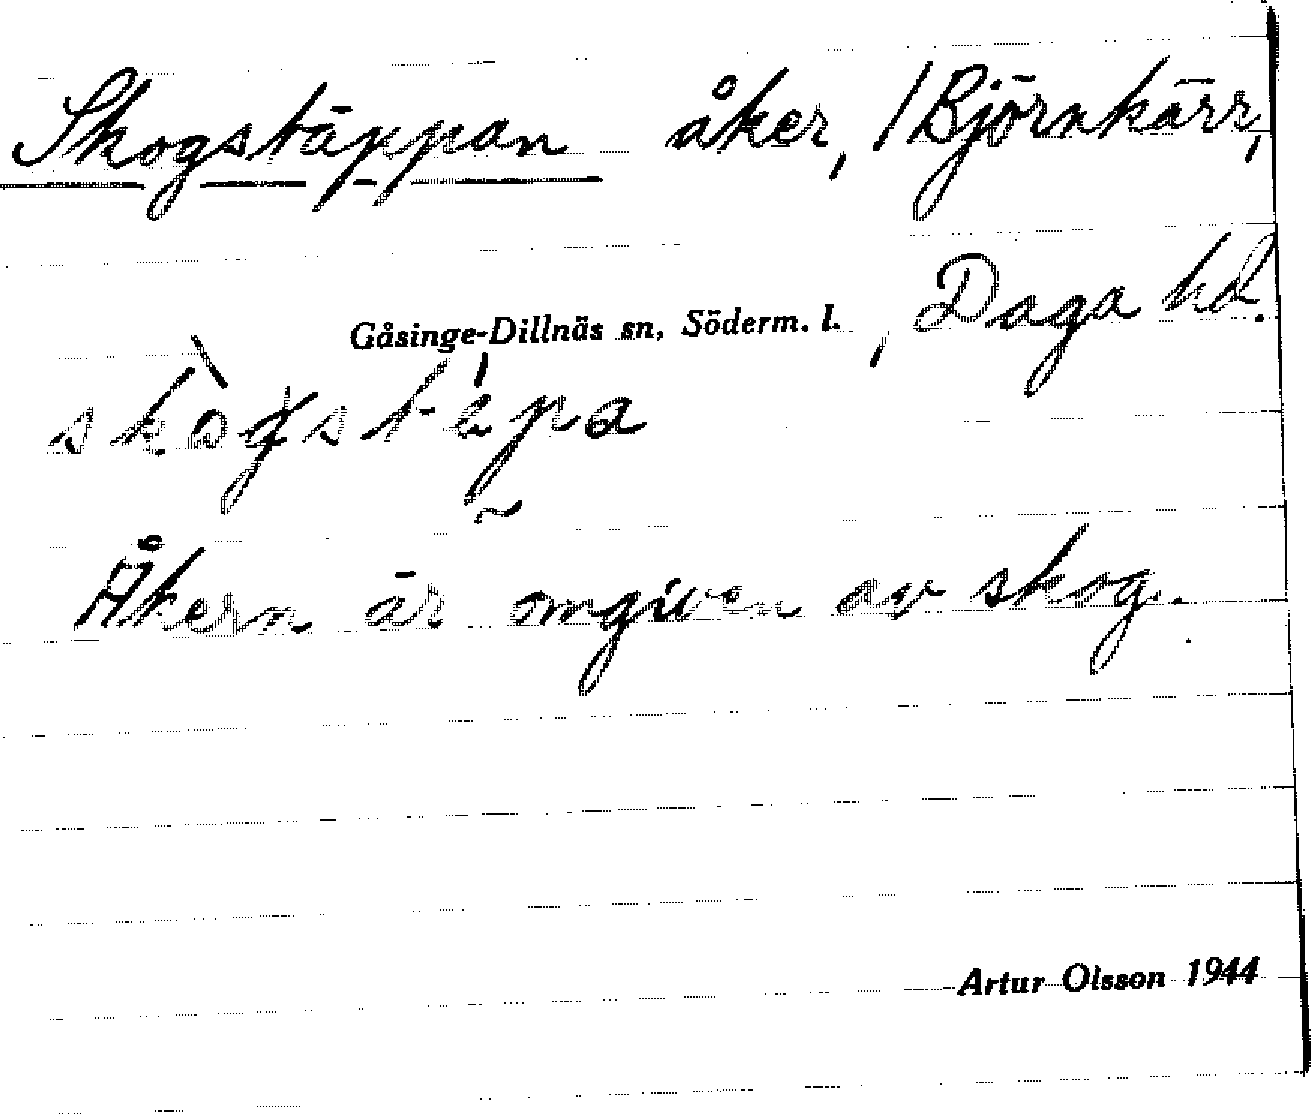 Skogstäppan åker, /Björnkärr,
Gåsinge-Dillnäs sn, Söderm. l., Daga hd.
Åkern är omgiven av skog.
Artur Olsson 1944